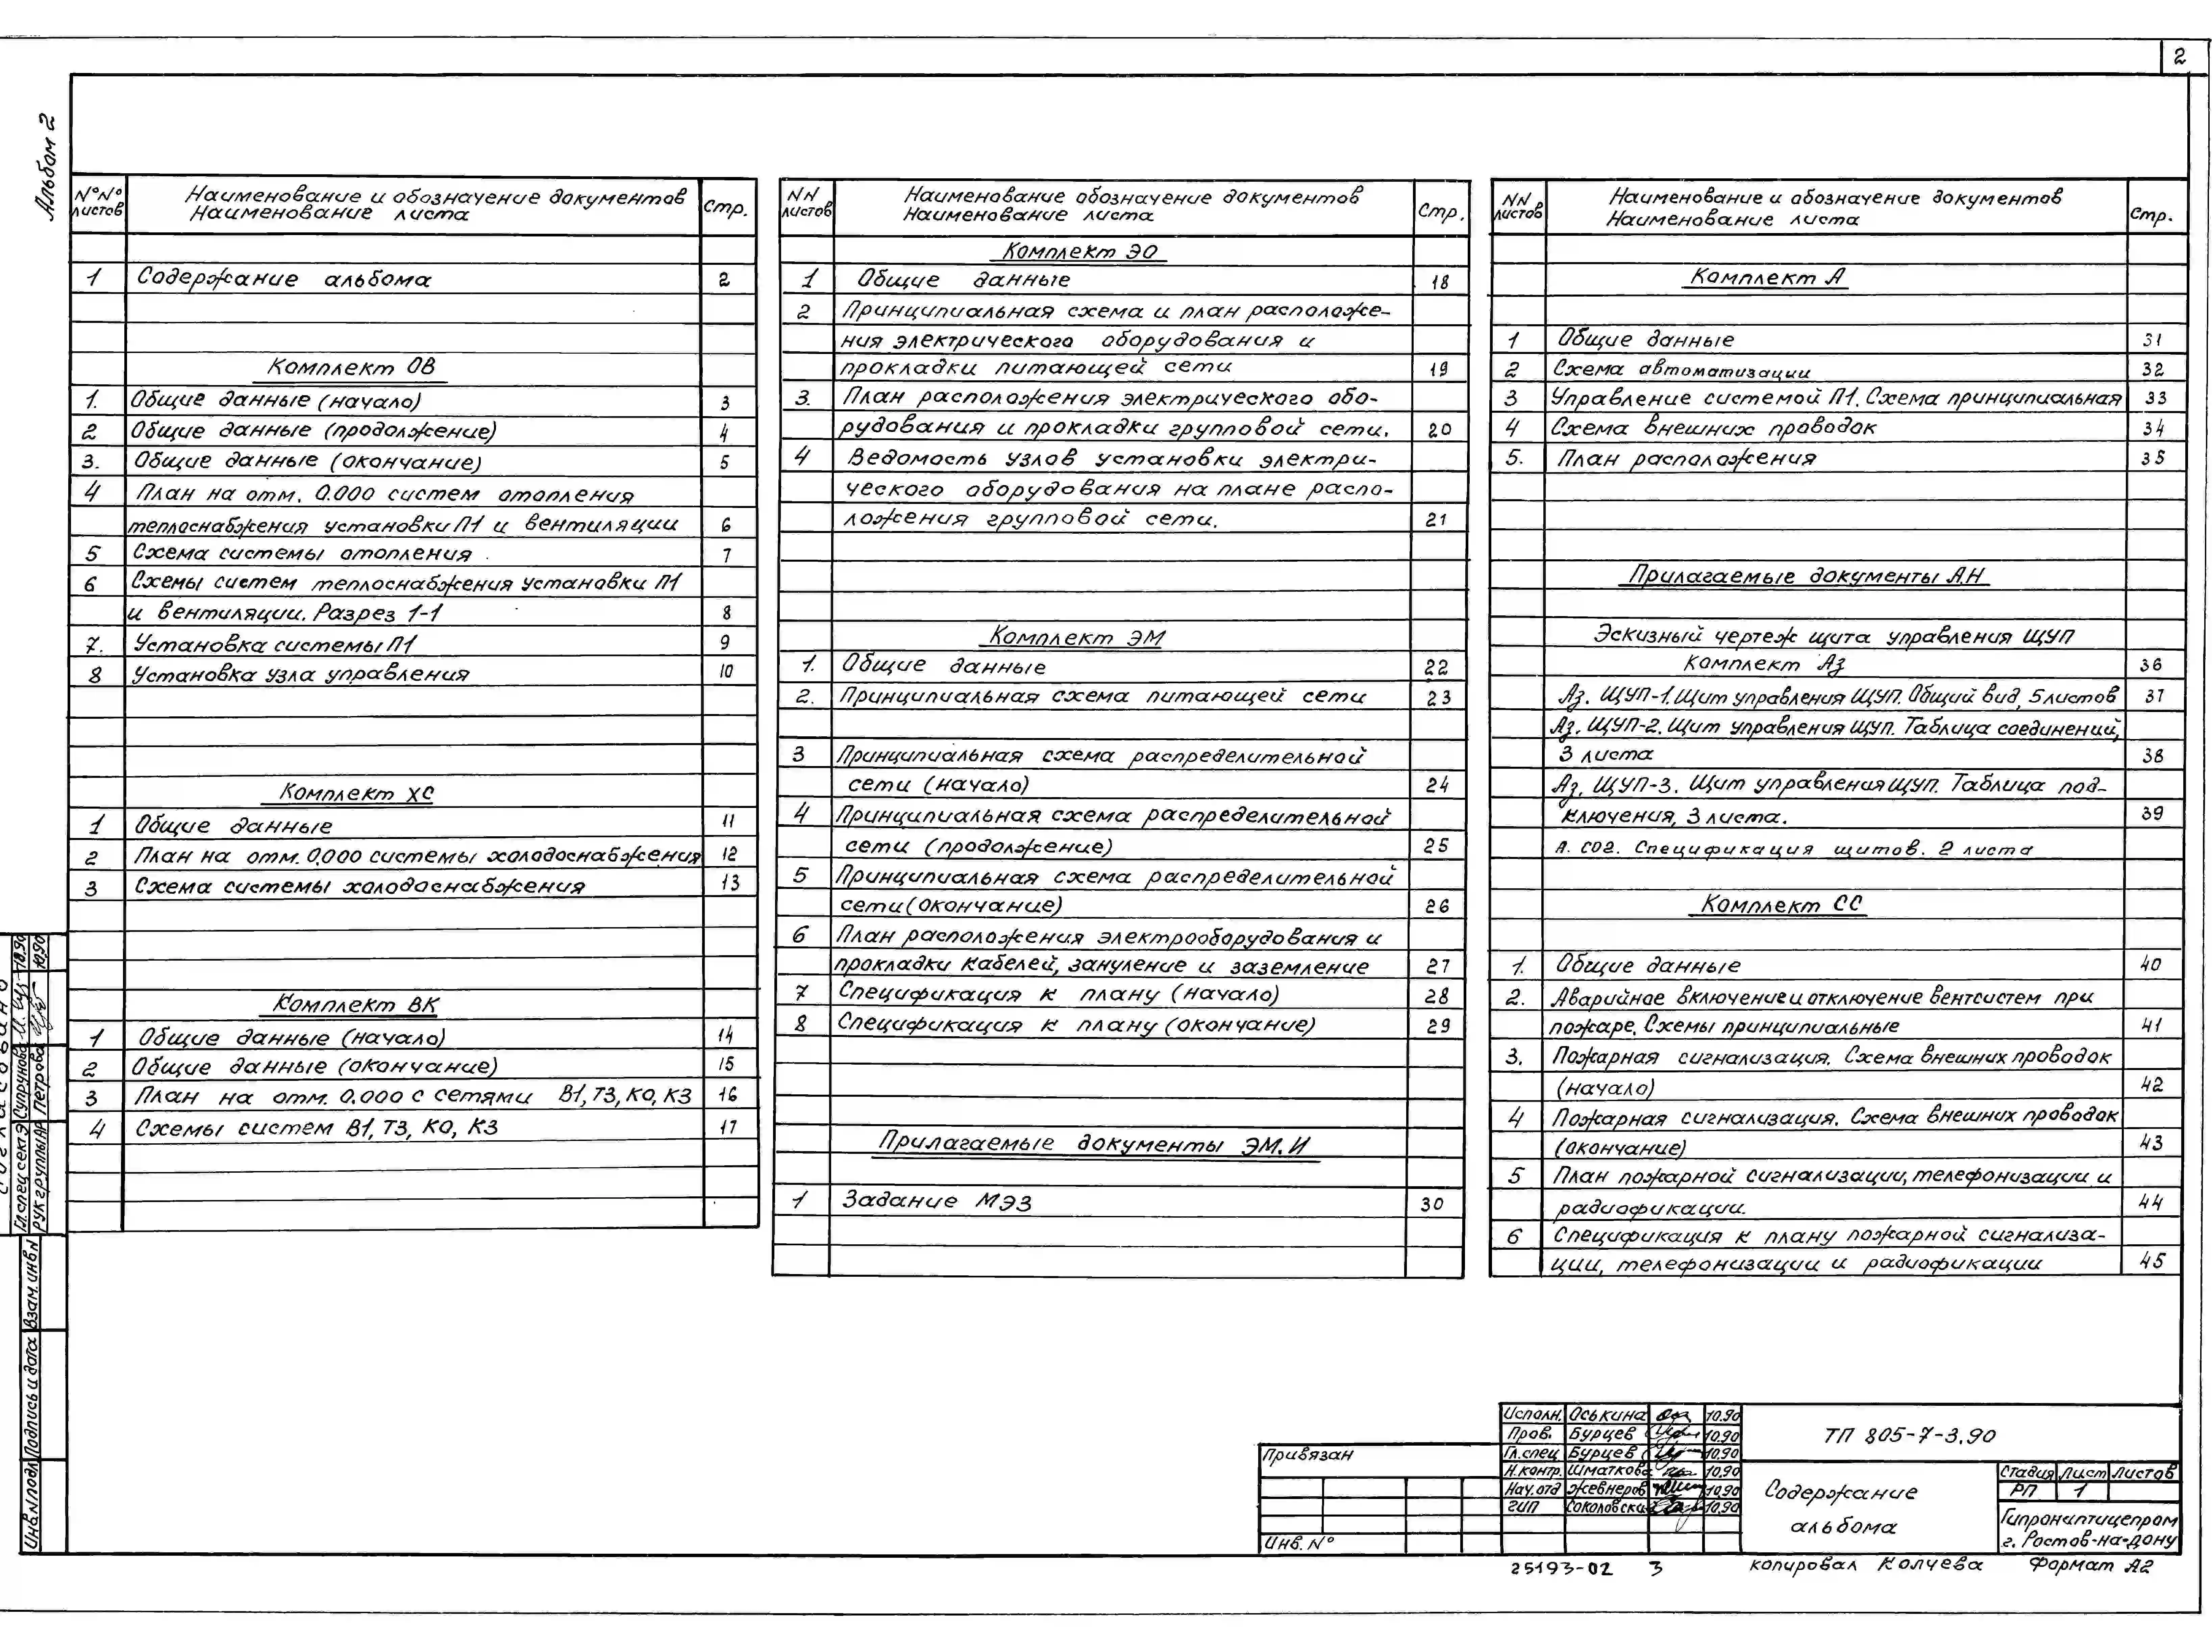 2
Альбом 2
N°N° листов
Наименование и обозначение документов
Наименование листа
Стр.
1 Содержание альбома 2
Комплект ОВ
1. Общие данные (начало) 3
2 Общие данные (продолжение) 4
3. Общие данные (окончание) 5
4 План на отм. 0.000 систем отопления
теплоснабжения установки П1 и вентиляции 6
5 Схема системы отопления 7
6 Схемы систем теплоснабжения установки П1
и вентиляции. Разрез 1-1 8
7. Установка системы П1 9
8 Установка узла управления 10
Комплект ХС
1 Общие данные 11
2 План на отм. 0.000 системы холодоснабжения 12
3 Схема системы холодоснабжения 13
Комплект ВК
1 Общие данные (начало) 14
2 Общие данные (окончание) 15
3 План на отм. 0.000 с сетями В1, Т3, К0, К3 16
4 Схемы систем В1, Т3, К0, К3 17
NN листов
Наименование обозначение документов
Наименование листа
Стр.
Комплект ЭО
1 Общие данные 18
2 Принципиальная схема и план расположе-
ния электрического оборудования и
прокладки питающей сети 19
3. План расположения электрического обо-
рудования и прокладки групповой сети. 20
4 Ведомость узлов установки электри-
ческого оборудования на плане распо-
ложения групповой сети. 21
Комплект ЭМ
1. Общие данные 22
2. Принципиальная схема питающей сети 23
3 Принципиальная схема распределительной
сети (начало) 24
4 Принципиальная схема распределительной
сети (продолжение) 25
5 Принципиальная схема распределительной
сети (окончание) 26
6 План расположения электрооборудования и
прокладки кабелей, зануление и заземление 27
7 Спецификация к плану (начало) 28
8 Спецификация к плану (окончание) 29
Прилагаемые документы ЭМ.И
1 Задание МЭЗ 30
NN листов
Наименование и обозначение документов
Наименование листа
Стр.
Комплект А
1 Общие данные 31
2 Схема автоматизации 32
3 Управление системой П1. Схема принципиальная 33
4 Схема внешних проводок 34
5. План расположения 35
Прилагаемые документы А.Н
Эскизный чертеж щита управления ЩУП
Комплект Аз 36
Аз. ЩУП-1. Щит управления ЩУП. Общий вид, 5 листов 37
Аз. ЩУП-2. Щит управления ЩУП. Таблица соединений,
3 листа 38
Аз. ЩУП-3. Щит управления ЩУП. Таблица под-
ключения, 3 листа. 39
А. СО2. Спецификация щитов. 2 листа
Комплект СС
1. Общие данные 40
2. Аварийное включение и отключение вентсистем при
пожаре. Схемы принципиальные 41
3. Пожарная сигнализация. Схема внешних проводок
(начало) 42
4 Пожарная сигнализация. Схема внешних проводок
(окончание) 43
5 План пожарной сигнализации, телефонизации и
радиофикации. 44
6 Спецификация к плану пожарной сигнализа-
ции, телефонизации и радиофикации 45
Согласовано
Гл.спец.сект.Э Супрунова 10.90
Рук.группы АР Петрова 10.90
Взам. инв N
Подпись и дата
Инв. N подл
Привязан
Инв. N°
Исполн. Оськина 10.90
Пров. Бурцев 10.90
Гл.спец Бурцев 10.90
Н.контр. Шматкова 10.90
Нач.отд Жевнеров 10.90
ГИП Соколовский 10.90
ТП 805-7-3.90
Содержание
альбома
Стадия Лист Листов
РП 1
Гипрониптицепром
г. Ростов-на-Дону
25193-02 3
копировал Колчева Формат А2